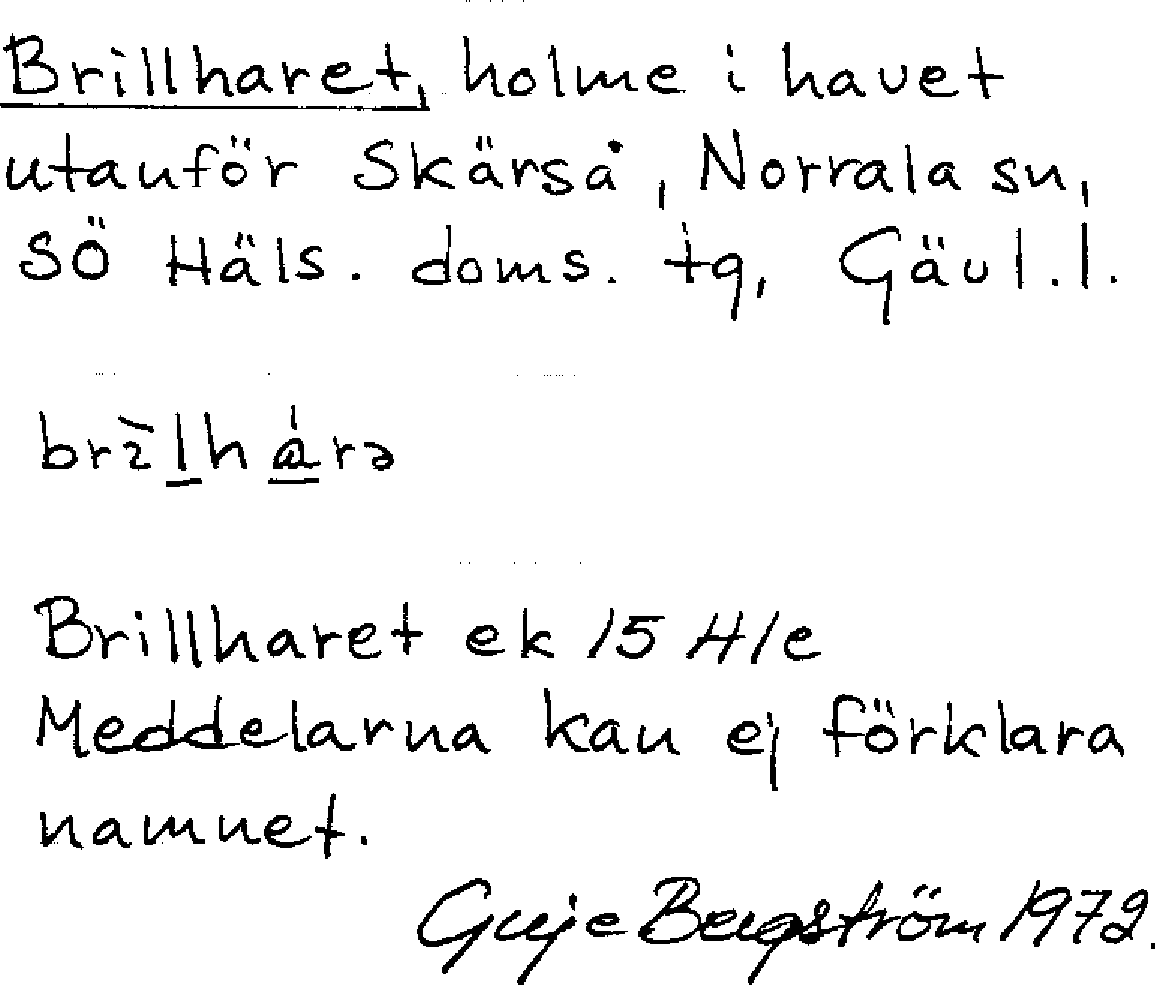 Brillharet, holme i havet
utanför Skärså, Norrala sn,
SÖ Häls. doms. tg, Gävl. l.
brìlhárə
Brillharet ek 15 H1e
Meddelarna kan ej förklara
namnet.
Guje Bergström 1972.